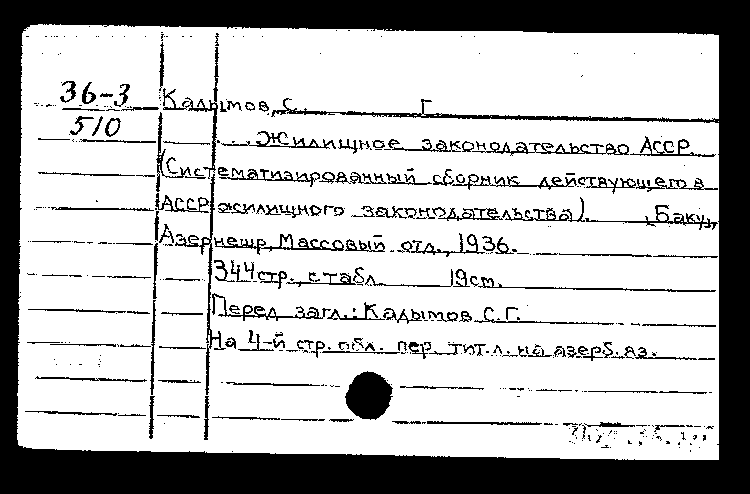 36-3
510
Кадымов, С. Г.
... Жилищное законодательство АССР.
(Систематизированный сборник действующего в
АССР жилищного законодательства). „Баку„,
Азернешр, Массовый отд., 1936.
344 стр., с табл. 19 cm.
Перед загл.: Кадымов С.Г.
На 4-й стр. обл. пер. тит. л. на азерб. яз.